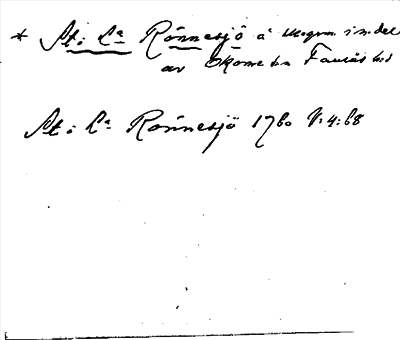 * St: L:a Rönnesjö å skogen i n. del
av Skome by Fauråshd
St: L:a Rönnesjö 1780 V:4:68